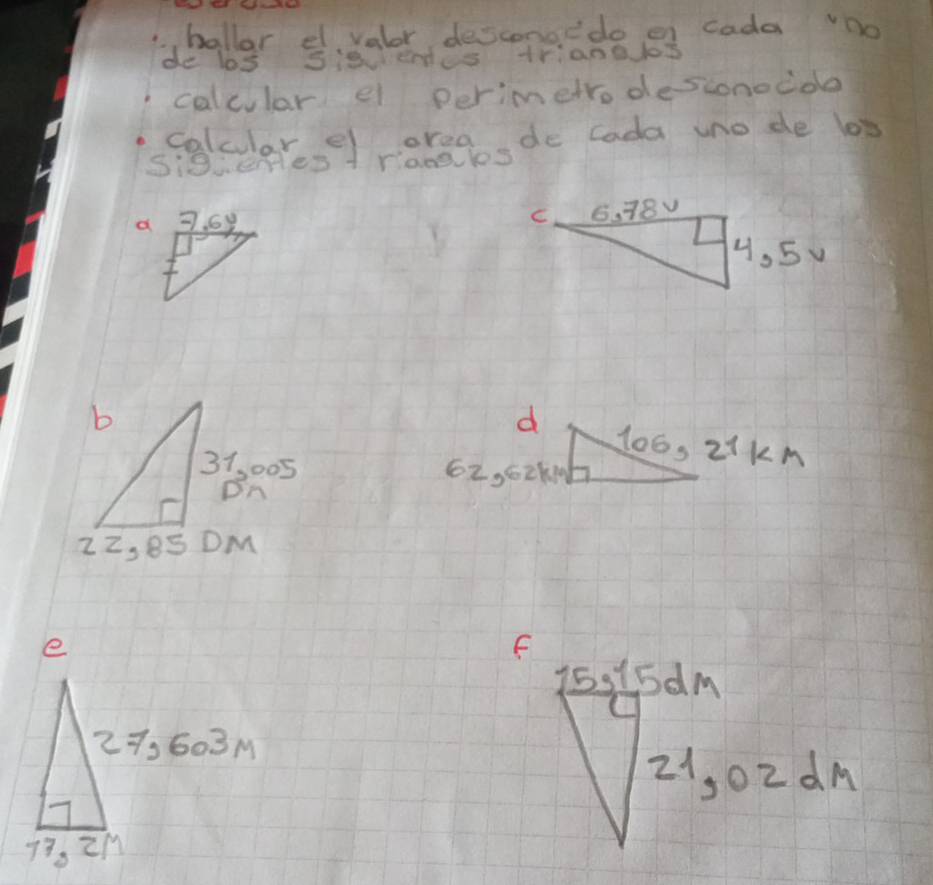 hallar el valor desconocido en cada uno
de los siguientes triangulos
calcular el perimetro desconocido
calcular el area de cada uno de los
siguientes triangulos
a 7,6y
c 6,78v
4,5v
b
31,005
Dm
22,85 DM
d
106,21KM
62,62KM
e
27,603M
17,2M
f
15,15dM
21,02dM